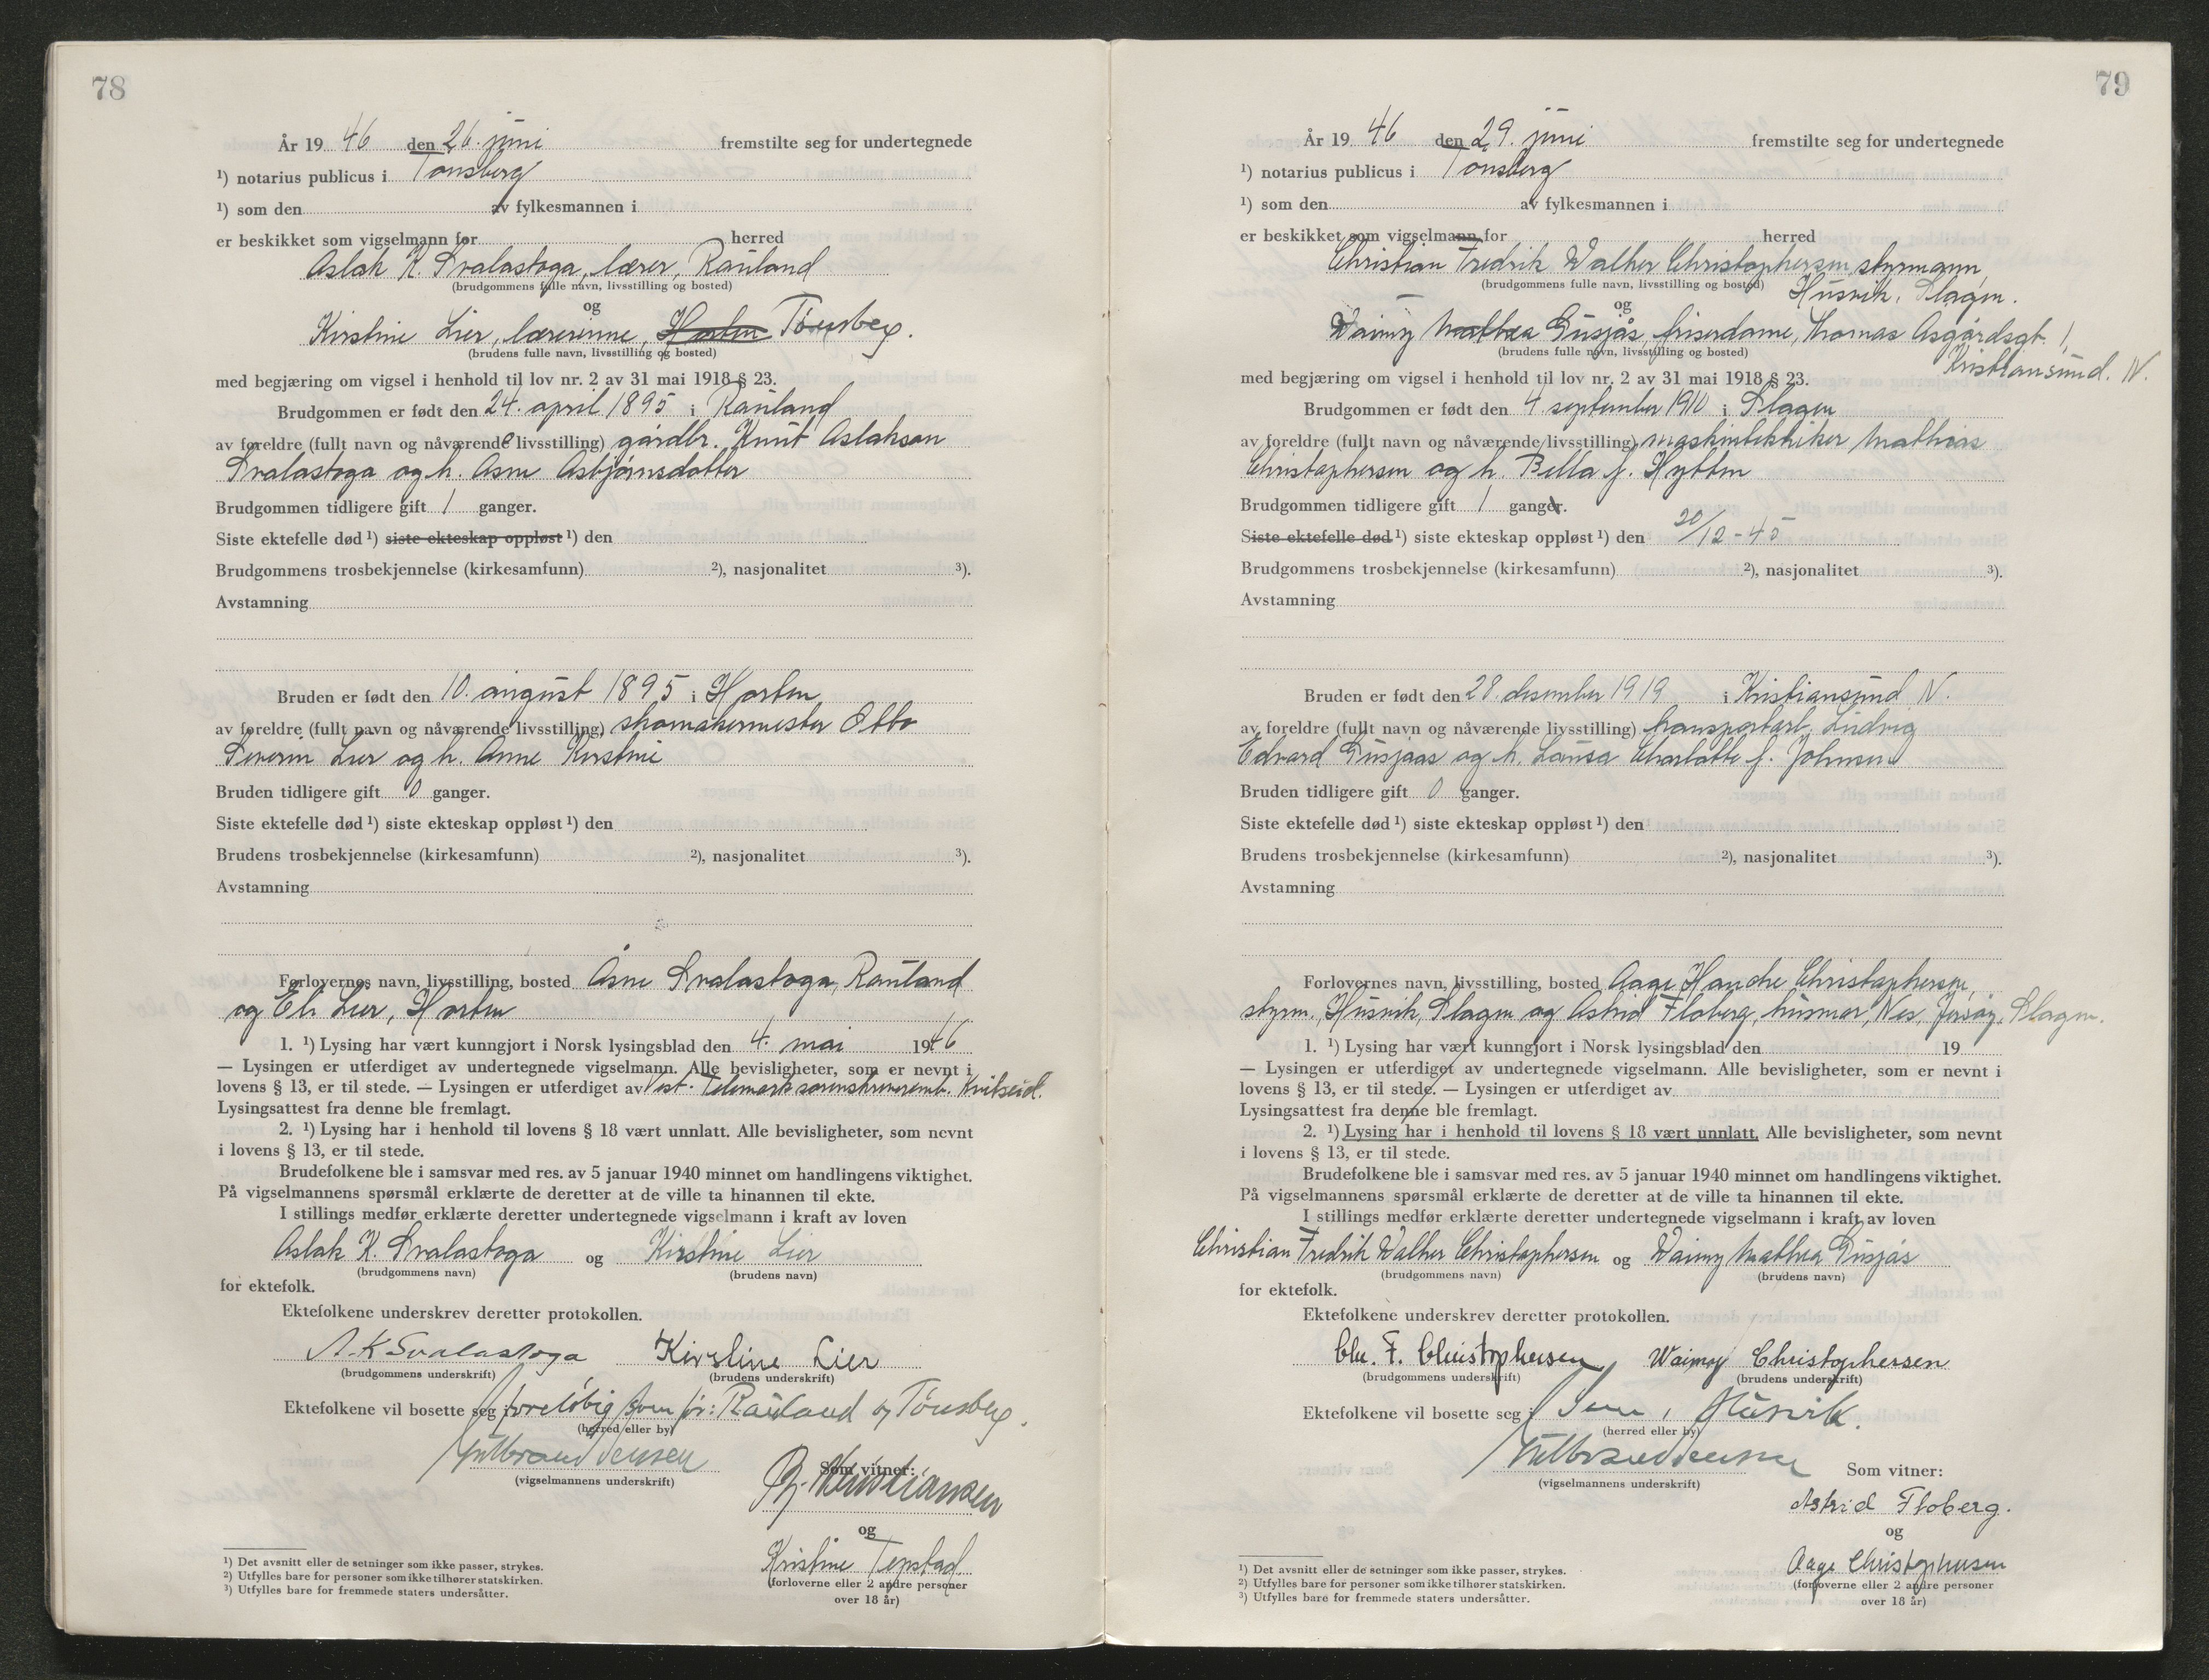 78
År 19 46 den 26. juni fremstilte seg for undertegnede
¹) notarius publicus i Tønsberg
¹) som den av fylkesmannen i
er beskikket som vigselmann for herred
Aslak K. Svalastoga, lærer, Rauland
(brudgommens fulle navn, livsstilling og bosted)
og
Kirstine Lier, lærerinne, Horten Tønsberg.
(brudens fulle navn, livsstilling og bosted)
med begjæring om vigsel i henhold til lov nr. 2 av 31 mai 1918 § 23.
Brudgommen er født den 24. april 1895 i Rauland
av foreldre (fullt navn og nåværende livsstilling) gårdbr. Knut Aslakson
Svalastoga og h. Asne Asbjørnsdotter
Brudgommen tidligere gift 1 ganger.
Siste ektefelle død ¹) siste ekteskap oppløst ¹) den
Brudgommens trosbekjennelse (kirkesamfunn) ²), nasjonalitet ³).
Avstamning
Bruden er født den 10. august 1895 i Horten
av foreldre (fullt navn og nåværende livsstilling) skomakermester Otto
Severin Lier og h. Anne Kirstine
Bruden tidligere gift 0 ganger.
Siste ektefelle død ¹) siste ekteskap oppløst ¹) den
Brudens trosbekjennelse (kirkesamfunn) ²), nasjonalitet ³).
Avstamning
Forlovernes navn, livsstilling, bosted Åsne Svalastoga, Rauland
og Eli Lier, Horten
1. ¹) Lysing har vært kunngjort i Norsk lysingsblad den 4. mai 1946
— Lysingen er utferdiget av undertegnede vigselmann. Alle bevisligheter, som er nevnt i
lovens § 13, er til stede. — Lysingen er utferdiget av Vest-Telemark sorenskriveremb. Kviteseid.
Lysingsattest fra denne ble fremlagt.
2. ¹) Lysing har i henhold til lovens § 18 vært unnlatt. Alle bevisligheter, som nevnt
i lovens § 13, er til stede.
Brudefolkene ble i samsvar med res. av 5 januar 1940 minnet om handlingens viktighet.
På vigselmannens spørsmål erklærte de deretter at de ville ta hinannen til ekte.
I stillings medfør erklærte deretter undertegnede vigselmann i kraft av loven
Aslak K. Svalastoga og Kirstine Lier
(brudgommens navn) (brudens navn)
for ektefolk.
Ektefolkene underskrev deretter protokollen.
A. K Svalastoga Kirstine Lier
(brudgommens underskrift) (brudens underskrift)
Ektefolkene vil bosette seg i foreløbig som før: Rauland og Tønsberg.
(herred eller by)
(vigselmannens underskrift)
Som vitner:
Kristiansen
og
Kristine Tepstad
(forloverne eller 2 andre personer
over 18 år)
¹) Det avsnitt eller de setninger som ikke passer, strykes.
²) Utfylles bare for personer som ikke tilhører statskirken.
³) Utfylles bare for fremmede staters undersåtter.
79
År 19 46 den 29. juni fremstilte seg for undertegnede
¹) notarius publicus i Tønsberg
¹) som den av fylkesmannen i
er beskikket som vigselmann for herred
Christian Fredrik Walther Christophersen, styrmann,
(brudgommens fulle navn, livsstilling og bosted) Husvik, Slagen.
og
Waimy Mathea Gusjås, friserdame, Thomas Asgårdsgt. 1,
(brudens fulle navn, livsstilling og bosted) Kristiansund. N.
med begjæring om vigsel i henhold til lov nr. 2 av 31 mai 1918 § 23.
Brudgommen er født den 4. september 1910 i Slagen
av foreldre (fullt navn og nåværende livsstilling) maskintekniker Mathias
Christophersen og h. Bella f. Hytten
Brudgommen tidligere gift 1 ganger.
Siste ektefelle død ¹) siste ekteskap oppløst ¹) den 20/12-45
Brudgommens trosbekjennelse (kirkesamfunn) ²), nasjonalitet ³).
Avstamning
Bruden er født den 28. desember 1919 i Kristiansund N.
av foreldre (fullt navn og nåværende livsstilling) transportarb. Ludvig
Edvard Gusjaas og h. Lovisa Charlotte f. Johnsen
Bruden tidligere gift 0 ganger.
Siste ektefelle død ¹) siste ekteskap oppløst ¹) den
Brudens trosbekjennelse (kirkesamfunn) ²), nasjonalitet ³).
Avstamning
Forlovernes navn, livsstilling, bosted Aage Hanche Christophersen,
styrm., Husvik, Slagen og Astrid Floberg, husmor, Nes, Jersøy, Slagen.
1. ¹) Lysing har vært kunngjort i Norsk lysingsblad den 19
— Lysingen er utferdiget av undertegnede vigselmann. Alle bevisligheter, som er nevnt i
lovens § 13, er til stede. — Lysingen er utferdiget av
Lysingsattest fra denne ble fremlagt.
2. ¹) Lysing har i henhold til lovens § 18 vært unnlatt. Alle bevisligheter, som nevnt
i lovens § 13, er til stede.
Brudefolkene ble i samsvar med res. av 5 januar 1940 minnet om handlingens viktighet.
På vigselmannens spørsmål erklærte de deretter at de ville ta hinannen til ekte.
I stillings medfør erklærte deretter undertegnede vigselmann i kraft av loven
Christian Fredrik Walther Christophersen og Waimy Mathea Gusjås
(brudgommens navn) (brudens navn)
for ektefolk.
Ektefolkene underskrev deretter protokollen.
Chr. F. Christophersen Waimy Christophersen
(brudgommens underskrift) (brudens underskrift)
Ektefolkene vil bosette seg i Sem, Husvik.
(herred eller by)
(vigselmannens underskrift)
Som vitner:
Astrid Floberg.
og
Aage Christophersen
(forloverne eller 2 andre personer
over 18 år)
¹) Det avsnitt eller de setninger som ikke passer, strykes.
²) Utfylles bare for personer som ikke tilhører statskirken.
³) Utfylles bare for fremmede staters undersåtter.